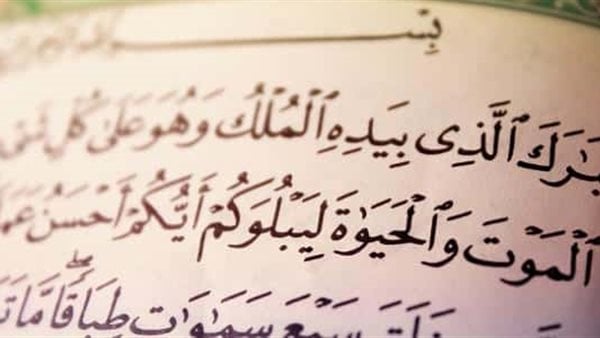 بِسْمِ
بَٰرَكَ ٱلَّذِى بِيَدِهِ ٱلْمُلْكُ وَهُوَ عَلَىٰ كُلِّ شَىْ
ٱلْمَوْتَ وَٱلْحَيَوٰةَ لِيَبْلُوَكُمْ أَيُّكُمْ أَحْسَنُ عَمَ
خَلَقَ سَبْعَ سَمَٰوَٰتٍ طِبَاقًا مَّا تَ